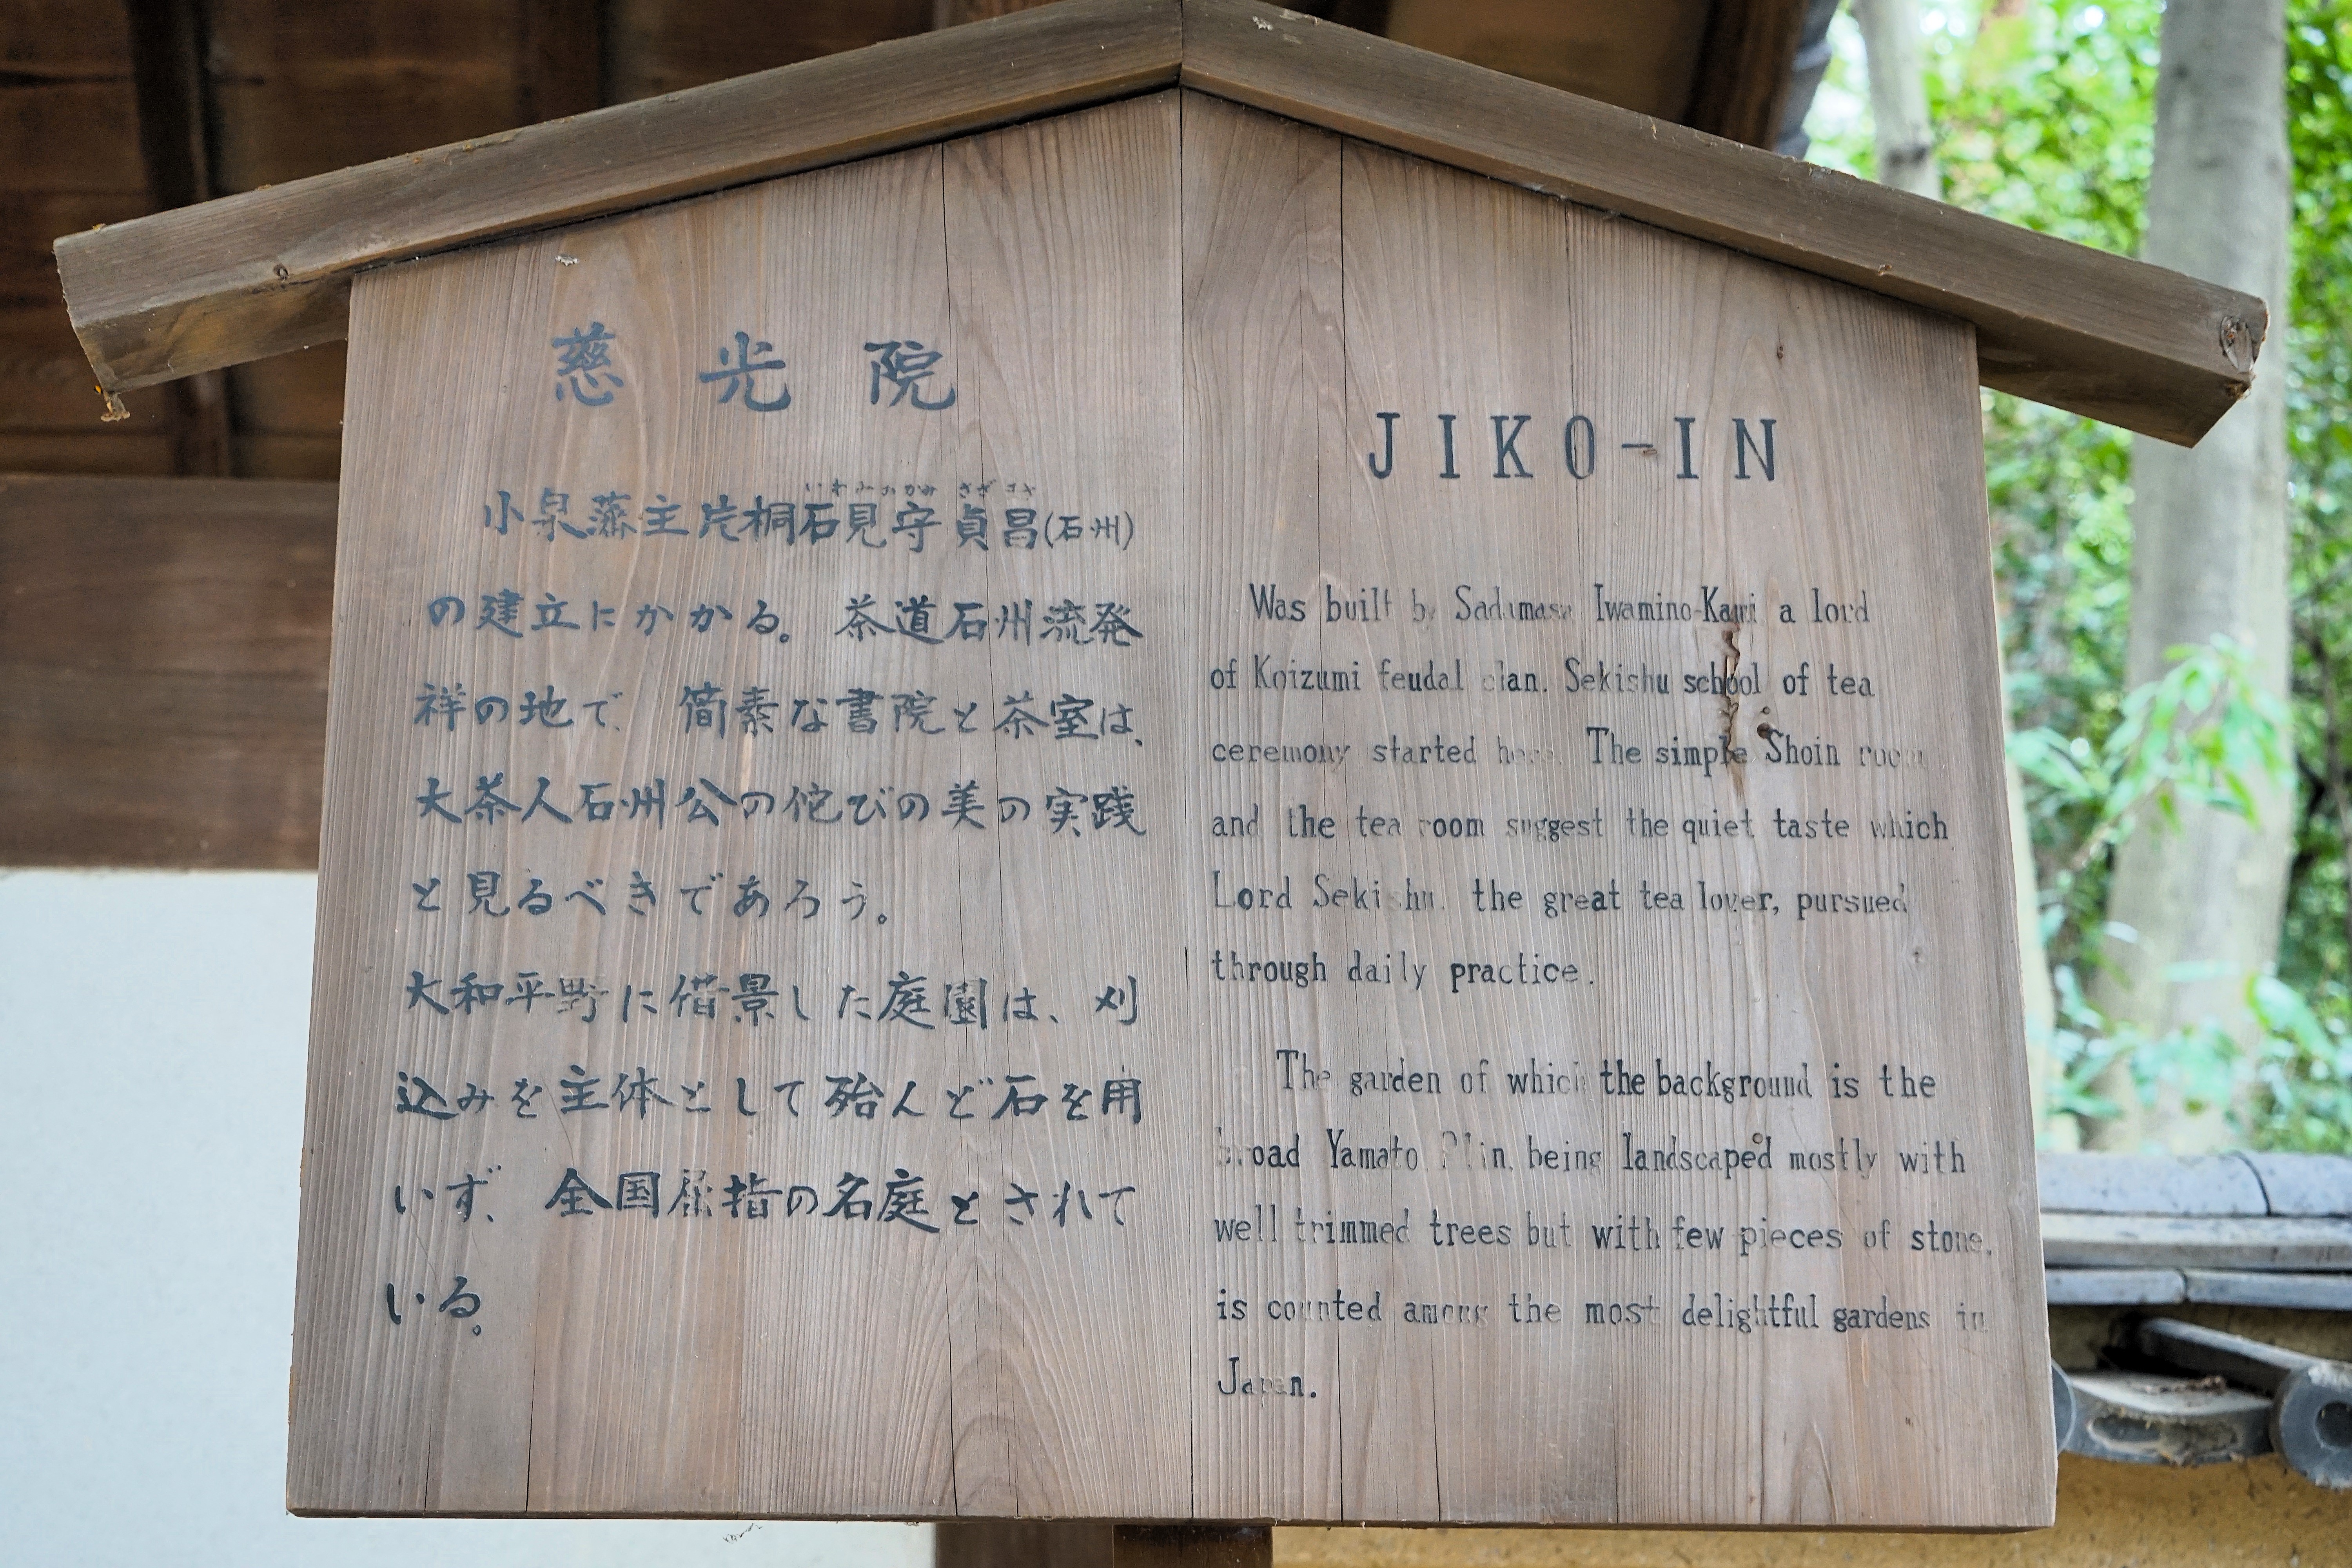 慈光院
いわみのかみ さだまさ
小泉藩主片桐石見守貞昌(石州)
の建立にかかる。茶道石州流発
祥の地で、簡素な書院と茶室は、
大茶人石州公の侘びの美の実践
と見るべきであろう。
大和平野に借景した庭園は、刈
込みを主体として殆んど石を用
いず、全国屈指の名庭とされて
いる。
JIKO-IN
Was built by Sadamasa Iwamino-Kami a lord
of Koizumi feudal clan. Sekishu school of tea
ceremony started here. The simple Shoin room
and the tea room suggest the quiet taste which
Lord Sekishu. the great tea lover, pursued
through daily practice.
The garden of which the background is the
broad Yamato Plain, being landscaped mostly with
well trimmed trees but with few pieces of stone,
is counted among the most delightful gardens in
Japan.